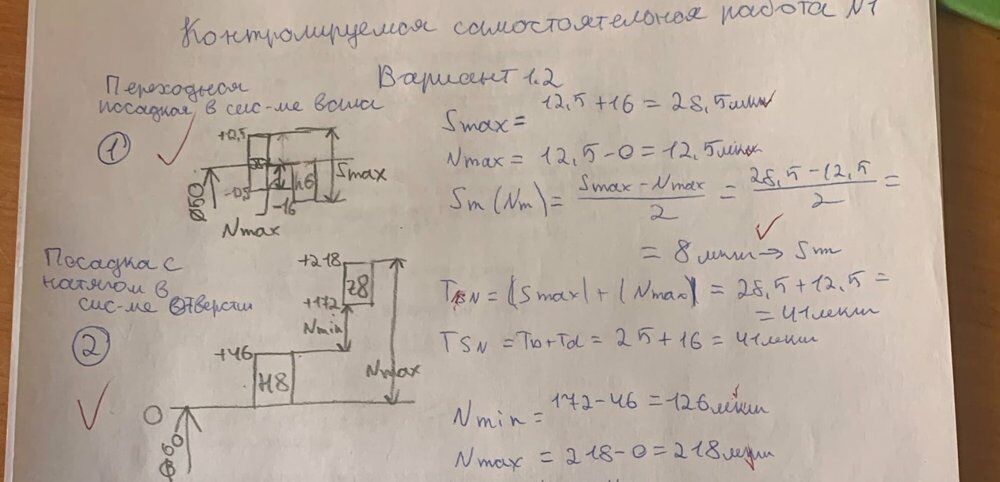 Контролируемая самостоятельная работа №1
Вариант 1.2
Переходная
посадка в сис-ме вала
1
+12,5
-12,5
h6
-16
Smax
Nmax
Ø50
Smax = 12,5+16 = 28,5мкм
Nmax = 12,5-0 = 12,5мкм
Sm (Nm) = Smax - Nmax / 2 = 28,5-12,5 / 2 =
= 8 мкм → Sm
TSN = |Smax| + |Nmax| = 28,5+12,5 =
= 41мкм
TSN = TD+Td = 25+16 = 41мкм
Посадка с
натягом в
сис-ме отверстия
2
+218
z8
+172
Nmin
+46
H8
Nmax
0
Ø60
Nmin = 172-46 = 126мкм
Nmax = 218-0 = 218мкм